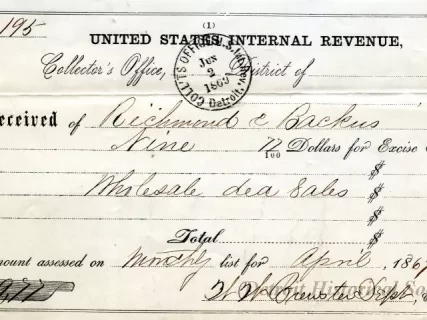 195
(1)
UNITED STATES INTERNAL REVENUE,
Collector's Office, District of
COLL'TS OFFICE U.S. Int. Rev. Detroit. JUN 2 1869
eceived of Richmond & Backus
Nine 77/100 Dollars for Excise
$
Wholesale dea Sales $
$
Total $
mount assessed on Monthly list for April, 186
9.77
Detroit Historical So